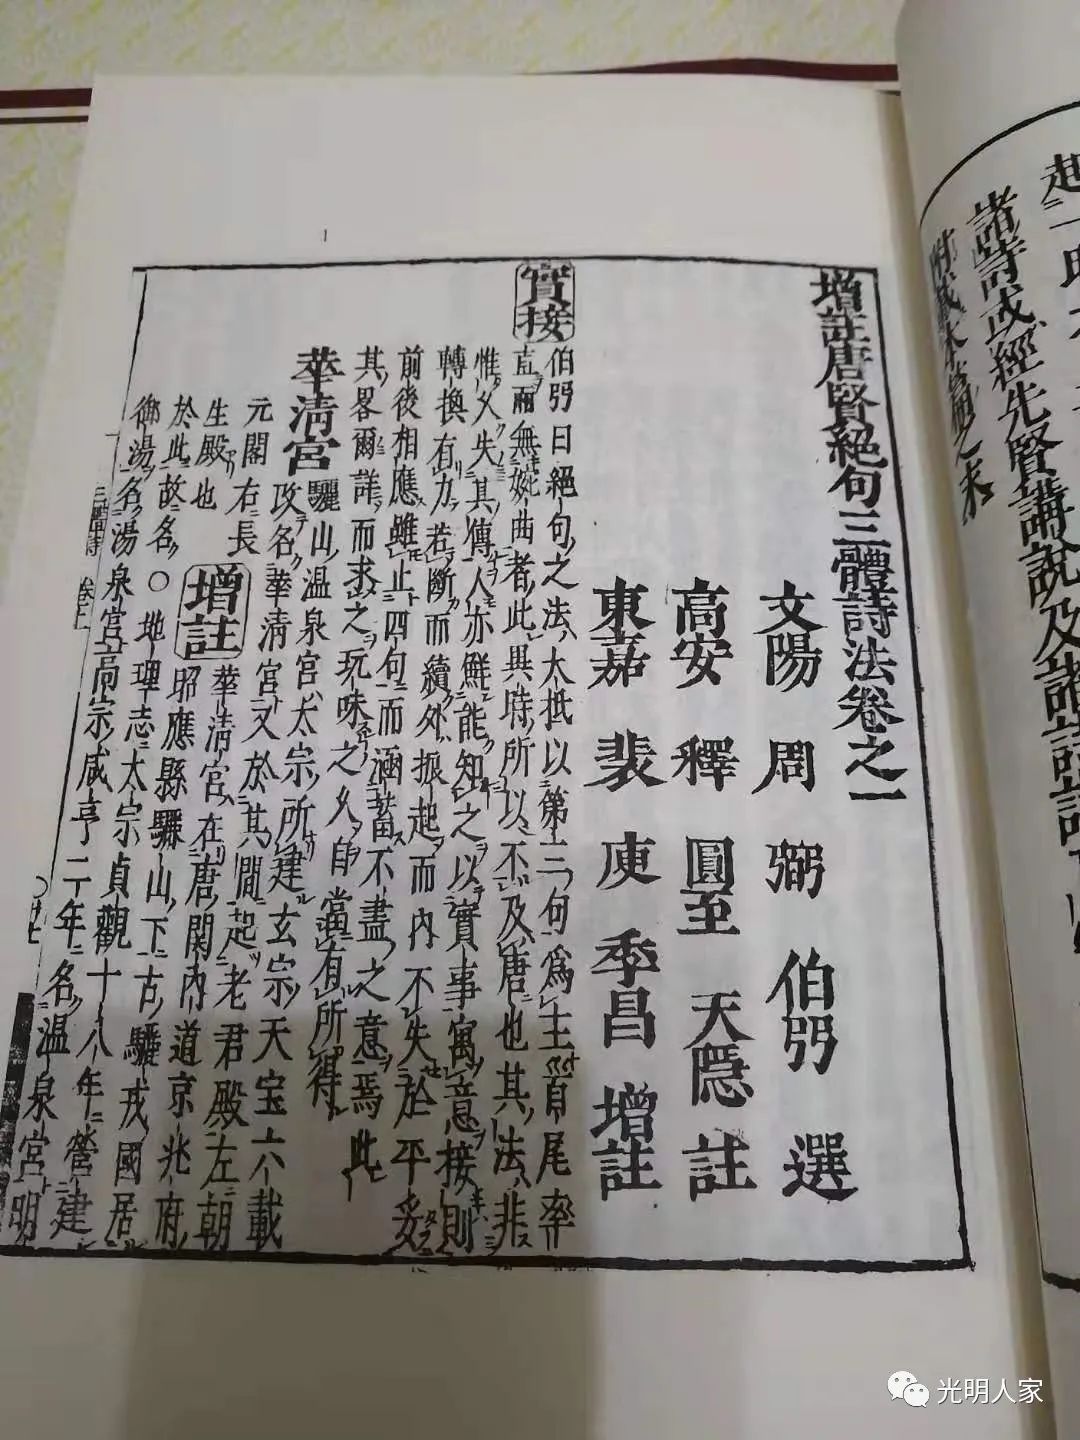 諸詩或經先賢講說及諸
增註唐賢絕句三體詩法卷之一
文陽 周 弼 伯弜 選
高安 釋 圓至 天隱 註
東嘉 裴 庾 季昌 增註
實接
伯弜曰絕句之法大抵以第三句爲主首尾率
直而無婉曲者此異時所以不及唐也其法非
惟久失其傳人亦鮮能知之以實事寓意接則
轉換有力若斷而續外振起而內不失於平妥
前後相應雖止四句而涵蓄不盡之意焉此
其畧爾詳而求之玩味之久自當有所得
華清宮 驪山溫泉宮太宗所建玄宗天宝六載
改名華清宮又於其間起老君殿左朝
元閣右長
生殿也
增註
華清宮在唐関內道京兆府
昭應縣驪山下古驪戎國居
於此故名〇地理志太宗貞觀十八年營建
御湯名湯泉宮高宗咸亨二年名溫泉宮明
三體詩 卷上
光明人家